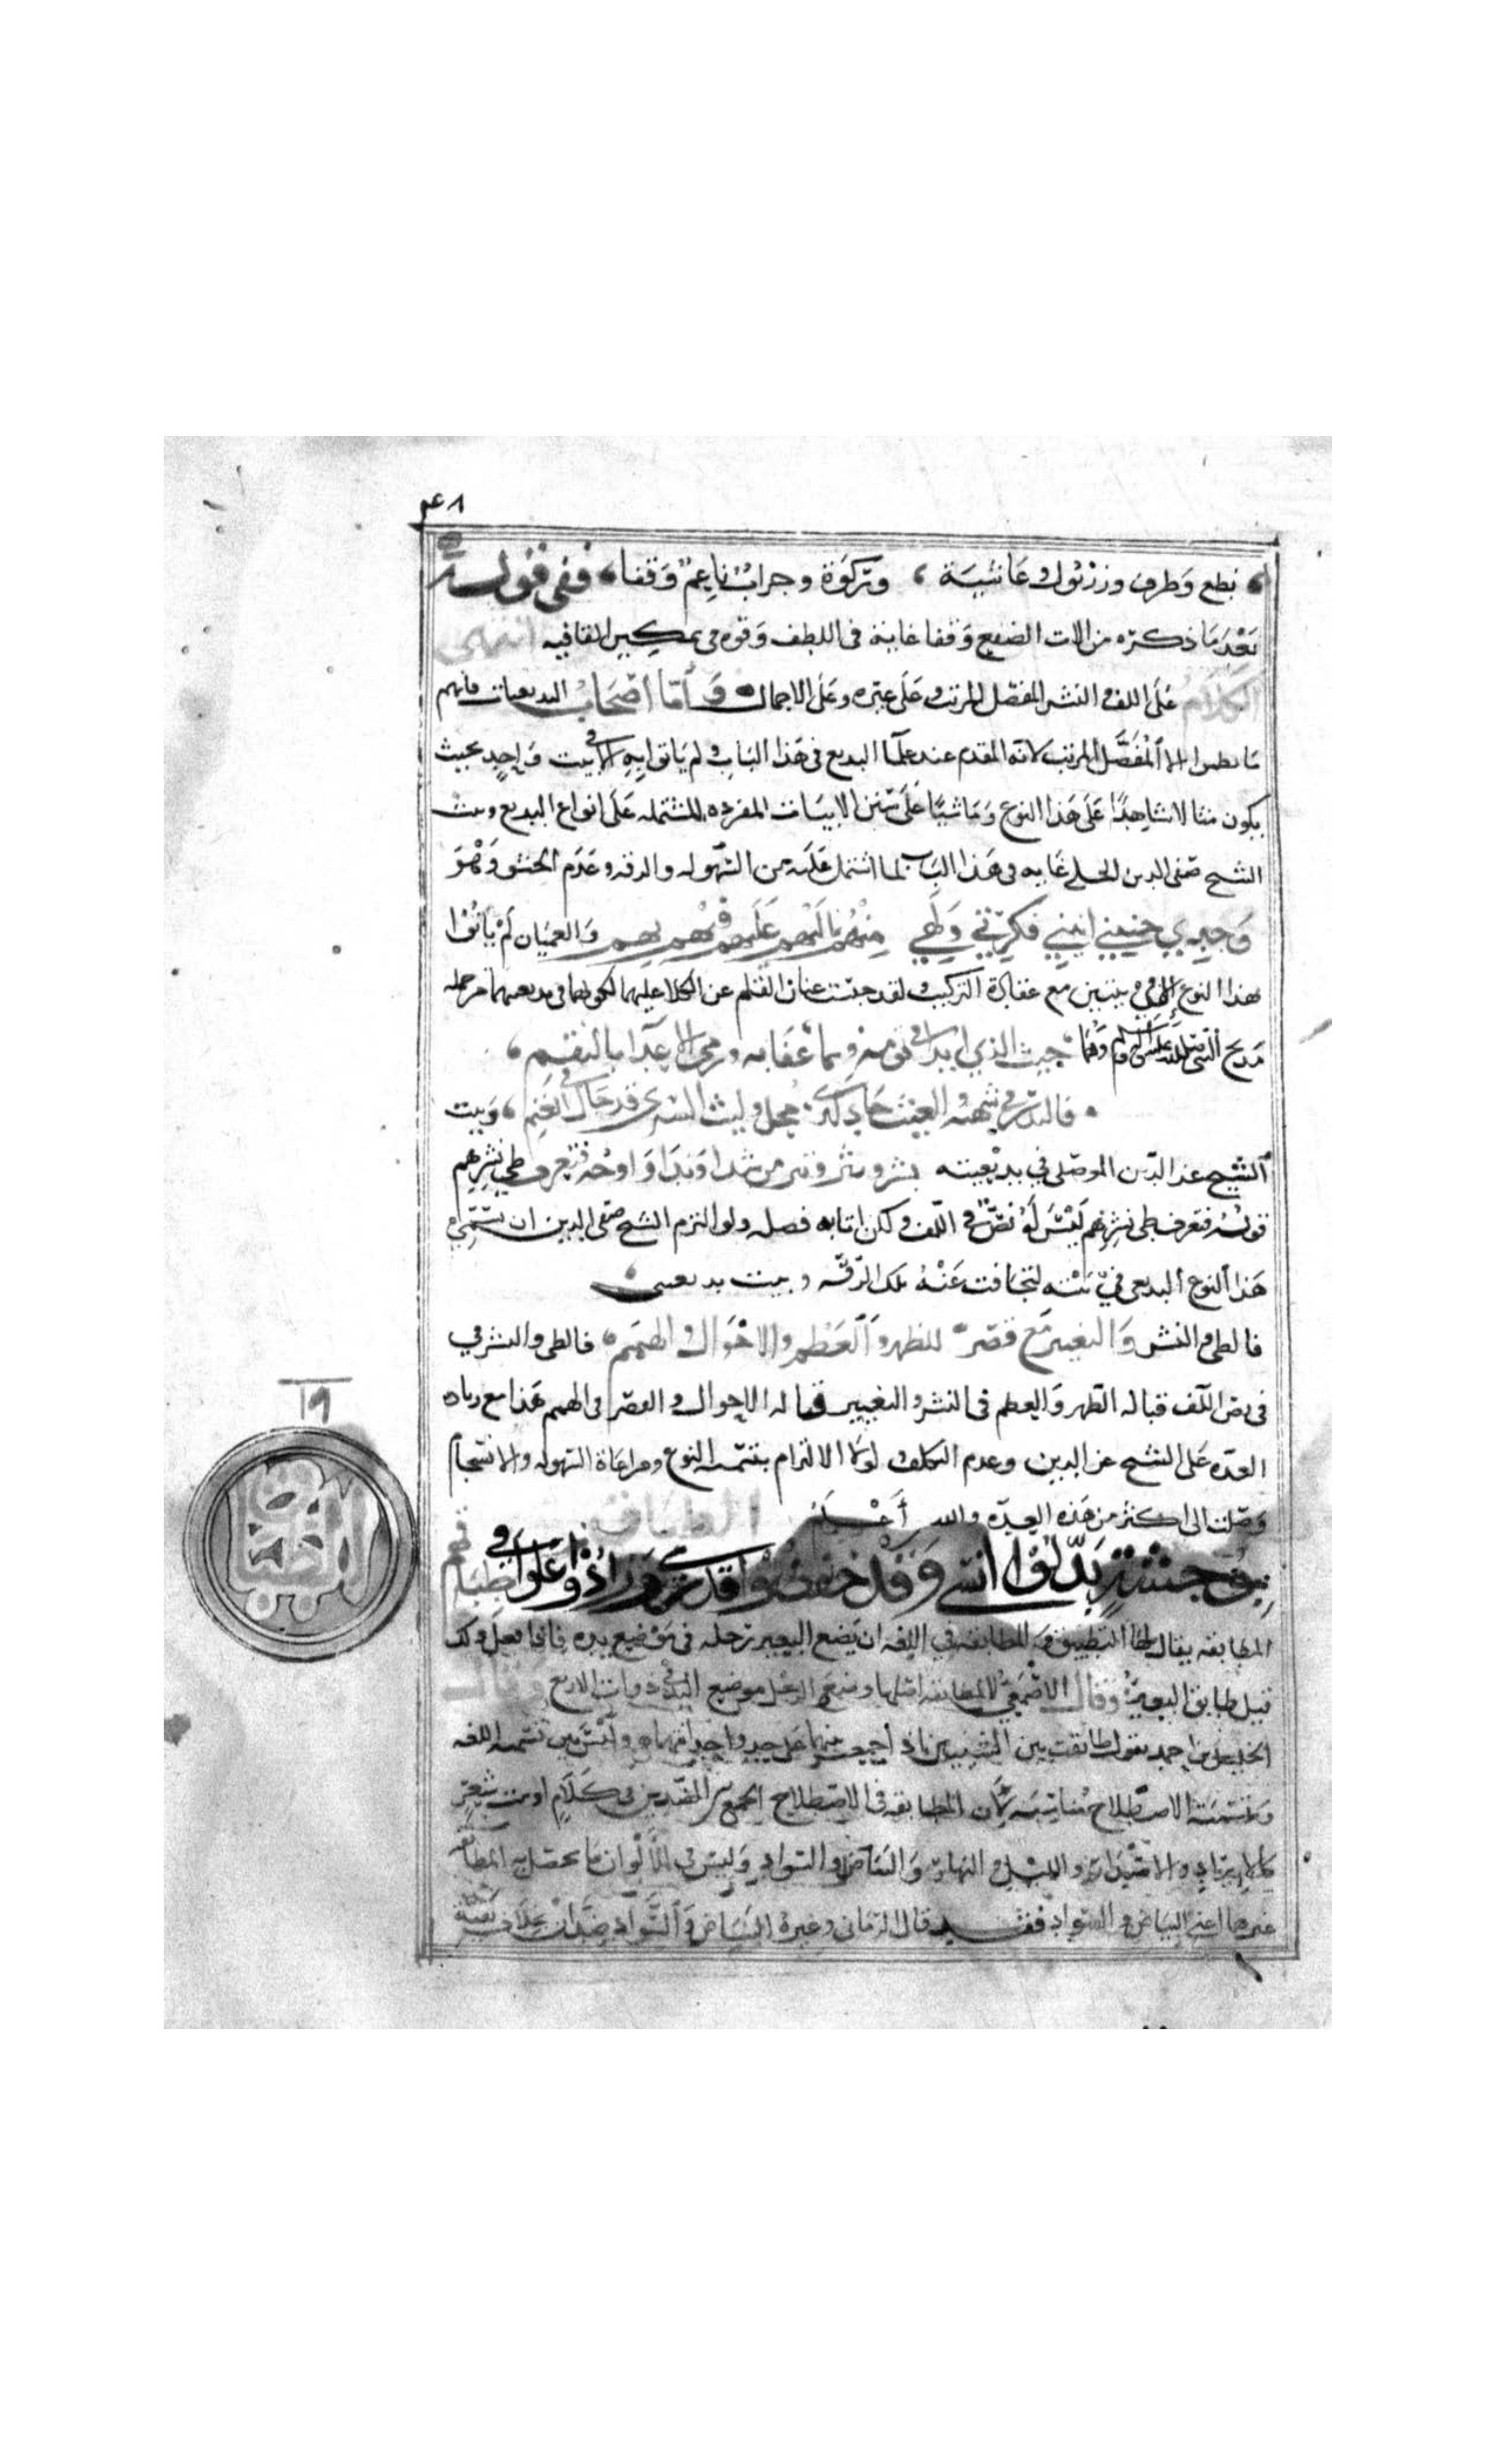 ٤٨
نطع وطرف وزربول وغاشية ، وتركوة وجراب ناعم وقفا ، ففي قوله
بعد ما ذكره من الات الصفع وقفا غاية في اللطف وقوه في تمكين القافيه انتهى
الكلام على اللف والنشر المفصل المرتب وعلى غيره وعلى الاجمال وأما اصحاب البديعيات فانهم
ما نظموا الا المفصل المرتب لانه المقدم عند علما البديع في هذا الباب ولم ياتوا به الا في بيت واحد بحيث
يكون مثالا شاهدا على هذا النوع وماشيا على سنن الابيات المفرده المشتمله على انواع البديع وبيت
الشيخ صفي الدين الحلي غايه في هذا الباب لما اشتمل عليه من السهوله والرقه وعدم الحشو وهو
وجدي حنيني انيني فكرتي ولهي منهم اليهم عليهم فيهم بهم والعميان لم يأتوا
بهذا النوع الا في بيتين مع عقادة التركيب ولقد حبست عنان القلم عن الكلام عليهما لكونهما في بديعيتهما من جمله
مديح النبي صلى الله عليه وسلم وهما حيث الذي ان بدا في قومه وحبا عفا به ورمى الاعدا بالنقم ،
فالبدر في شهبه والغيث جاد لذي محل وليث الشرى قد جال في الغنم ، وبيت
الشيخ عز الدين الموصلي في بديعيته نشر ونشر ونشر من شذا وندا واوجه فتعرف طي نشرهم
قوله فتعرف طي نشرهم ليس له نص في اللف ولكن اتا به فصله ولو التزم الشيخ صفي الدين ان يسمي
هذا النوع البديعي في بيته لتجافت عنه تلك الرقه وبيت بديعيتي
فالطي والنشر والتغيير مع قصر للظهر والعظم والاحوال والهمم ، فالطي والنشر في
في نص اللف قباله الظهر والعظم في النشر والتغيير قباله الاحوال والقصر في الهمم هذا مع زياده
العده على الشيخ عز الدين وعدم التكلف لولا الالتزام بتسمية النوع ومراعاة السهوله والانسجام
وصلت الى اكثر من هذه العده والله أعلم الطباق
بوحشة بدلوا انسي وقد خفضوا قدري وزادوا علوا في طباقهم
المطابقه يقال لها التطبيق والمطابقه في اللغه ان يضع البعير رجله في موضع يده فاذا فعل ذلك
قيل طابق البعير وقال الاصمعي المطابقه اصلها وضع الرجل موضع اليد في ذوات الاربع وقال
الخليل بن احمد يقول طابقت بين الشيئين اذا جمعت بينهما على حد واحد انتهى وليس بين تسميه اللغه
وتسمية الاصطلاح مناسبه لان المطابقه في الاصطلاح الجمع بين الضدين في كلام او بيت شعر
كالايراد والاصدار والليل والنهار والبياض والسواد وليس في الألوان ما تحصل به المطابقه
غيرهما اعني البياض والسواد فقد قال الرماني وغيره البياض والسواد ضدان بخلاف بقية
١٩
الطباق